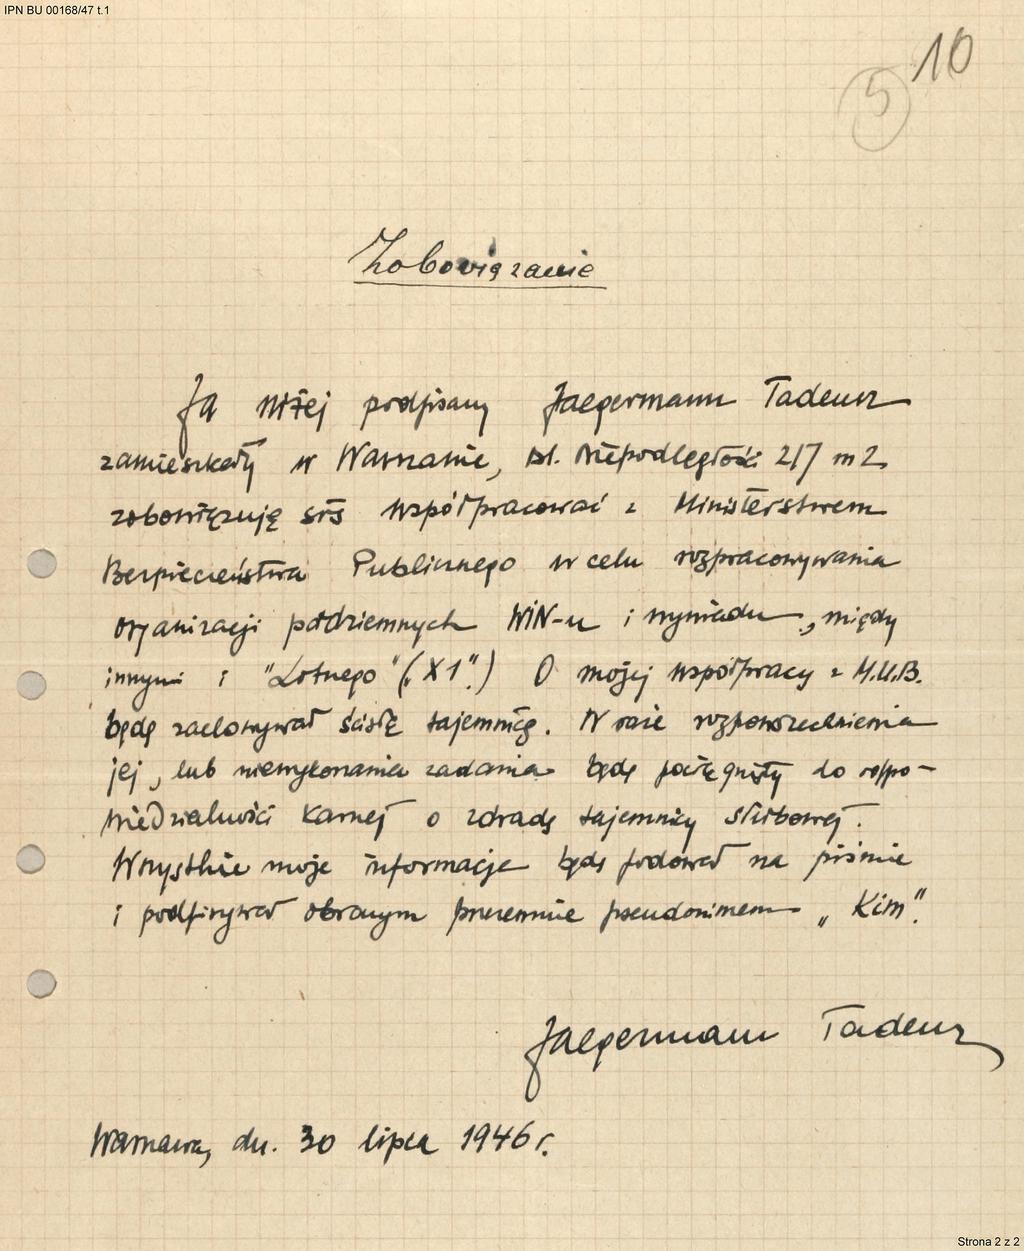 IPN BU 00168/47 t.1
10
5
Zobowiązanie
Ja niżej podpisany Jaegermann Tadeusz
zamieszkały w Warszawie, al. Niepodległości 217 m 2
zobowięzuję się współpracować z Ministerstwem
Bezpieczeństwa Publicznego w celu rozpracowywania
organizacji podziemnych WiN-u i wywiadu, między
innymi i "Lotnego" („X1".) O mojej współpracy z M.U.B.
będę zachowywał ścisłę tajemnicę. W razie rozpowszechnienia
jej, lub niewykonania zadania będę pociągnięty do odpo-
wiedzialności karnej o zdradę tajemnicy służbowej.
Wszystkie moje informacje będę podawał na piśmie
i podpisywał obranym przezemnie pseudonimem „Kim".
Jaegermann Tadeusz
Warszawa, dn. 30 lipca 1946 r.
Strona 2 z 2